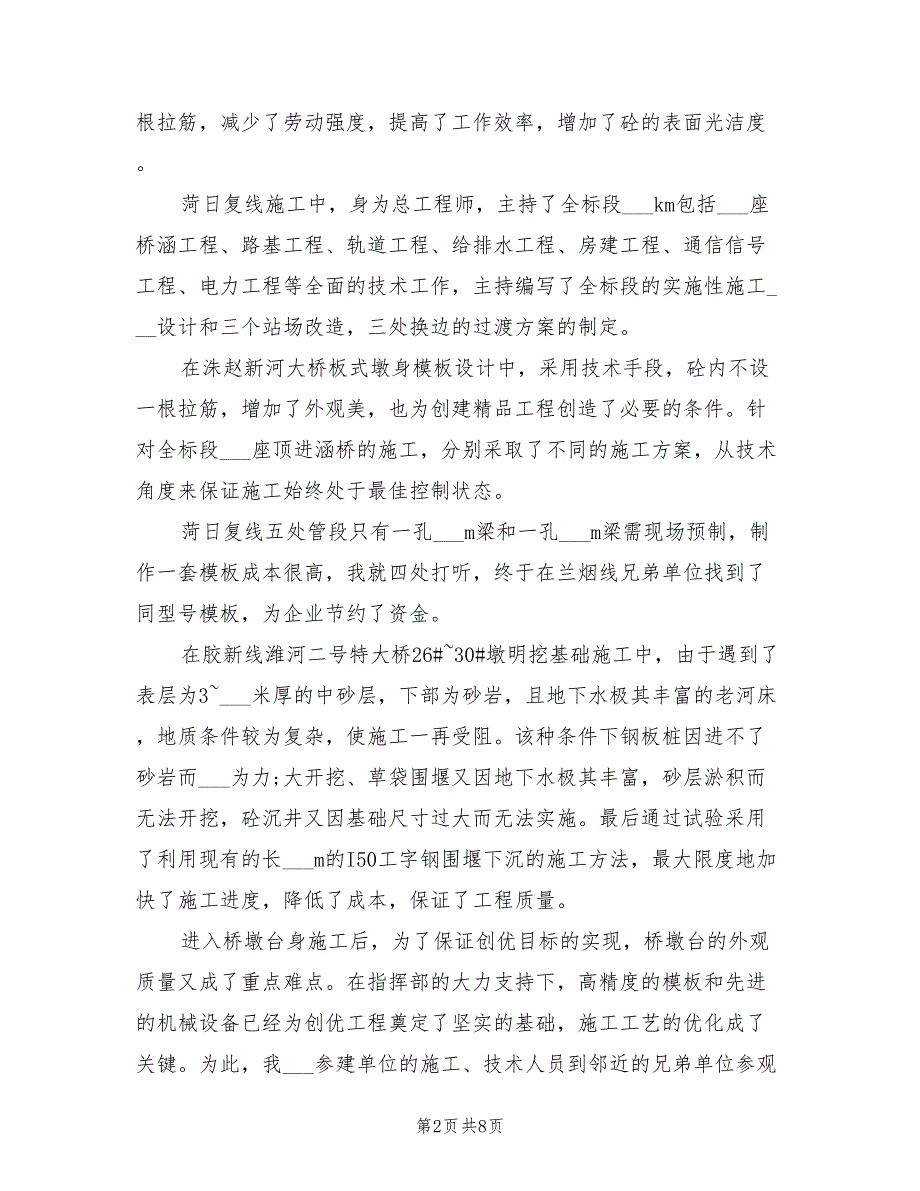 根拉筋，减少了劳动强度，提高了工作效率，增加了砼的表面光洁度
。
菏日复线施工中，身为总工程师，主持了全标段___km包括___座
桥涵工程、路基工程、轨道工程、给排水工程、房建工程、通信信号
工程、电力工程等全面的技术工作，主持编写了全标段的实施性施工_
__设计和三个站场改造，三处换边的过渡方案的制定。
在洙赵新河大桥板式墩身模板设计中，采用技术手段，砼内不设
一根拉筋，增加了外观美，也为创建精品工程创造了必要的条件。针
对全标段___座顶进涵桥的施工，分别采取了不同的施工方案，从技术
角度来保证施工始终处于最佳控制状态。
菏日复线五处管段只有一孔___m梁和一孔___m梁需现场预制，制
作一套模板成本很高，我就四处打听，终于在兰烟线兄弟单位找到了
同型号模板，为企业节约了资金。
在胶新线潍河二号特大桥26#~30#墩明挖基础施工中，由于遇到了
表层为3~___米厚的中砂层，下部为砂岩，且地下水极其丰富的老河床
，地质条件较为复杂，使施工一再受阻。该种条件下钢板桩因进不了
砂岩而___为力;大开挖、草袋围堰又因地下水极其丰富，砂层淤积而
无法开挖，砼沉井又因基础尺寸过大而无法实施。最后通过试验采用
了利用现有的长___m的I50工字钢围堰下沉的施工方法，最大限度地加
快了施工进度，降低了成本，保证了工程质量。
进入桥墩台身施工后，为了保证创优目标的实现，桥墩台的外观
质量又成了重点难点。在指挥部的大力支持下，高精度的模板和先进
的机械设备已经为创优工程奠定了坚实的基础，施工工艺的优化成了
关键。为此，我___参建单位的施工、技术人员到邻近的兄弟单位参观
第2页 共8页